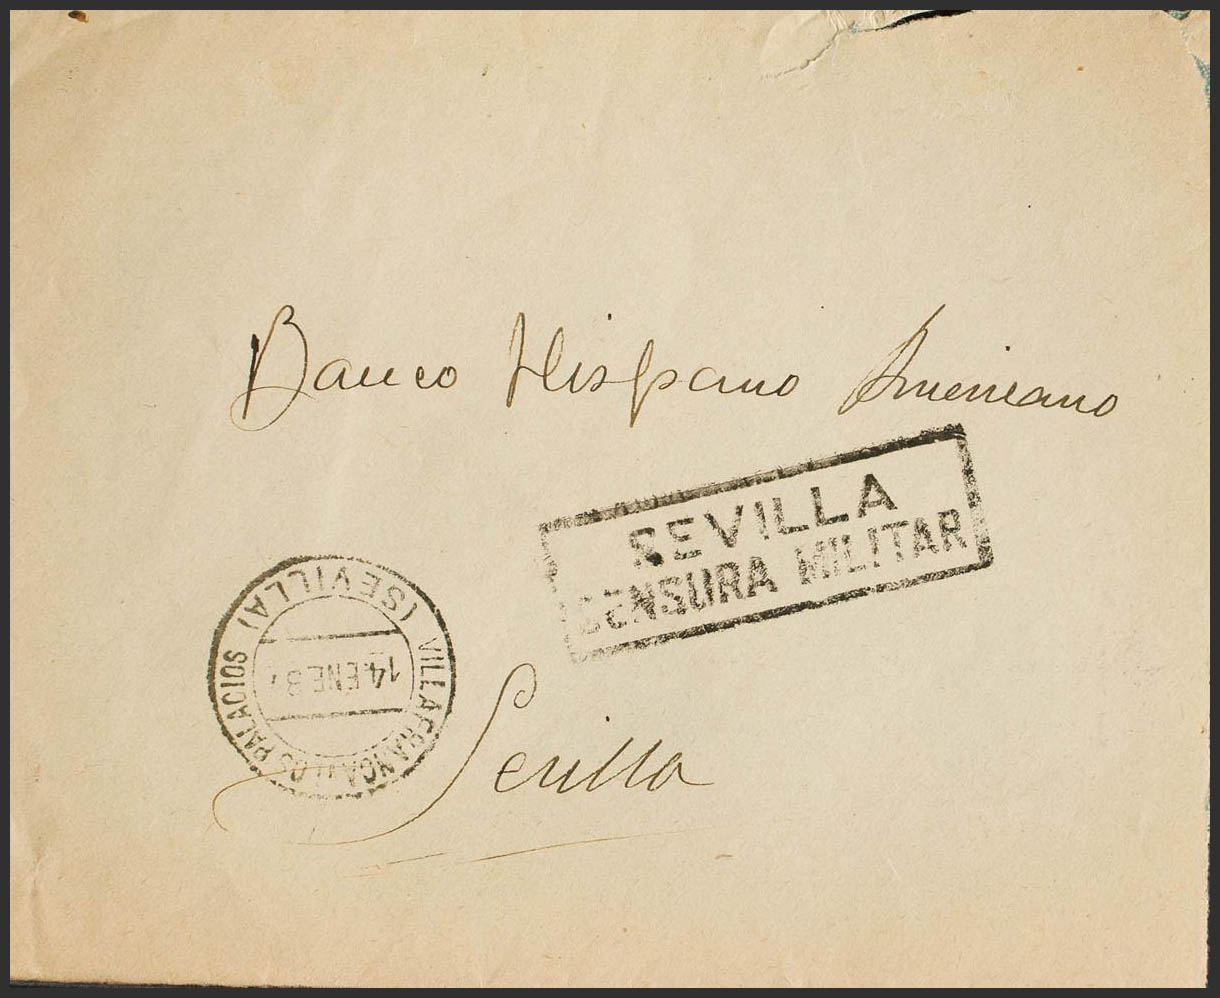 Banco Hispano Americano
SEVILLA
CENSURA MILITAR
VILLAFRANCA Y LOS PALACIOS (SEVILLA)
14.ENE.37
Sevilla